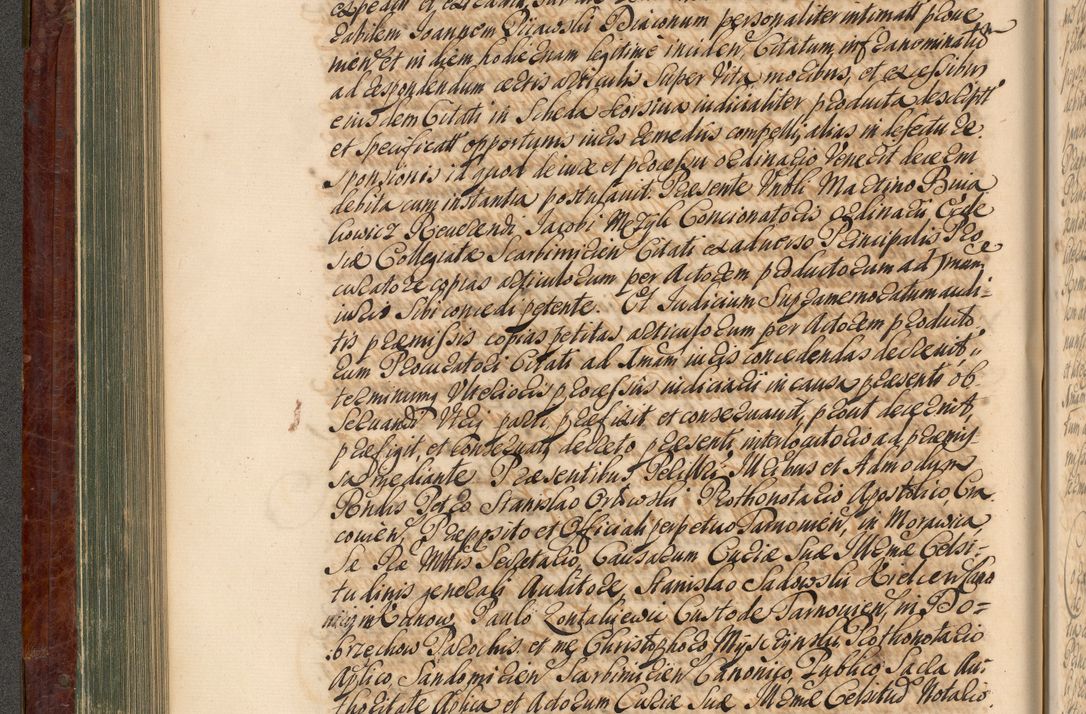 rabilem Joannem Pijarski Diaconum personaliter intimatt prove
men et in diem hodiernam legitime inciden, Citatum, inf. ranominatū
ad respondendum certis articulis super Vita, moribus, et excessibus
eiusdem Citati in scheda seorsiva iudicialiter producta descriptt
et specificatt opportunis iuris remediis compelli, alias in defectu re
sponsionis id quod de iure et processu ordinario Venerit decerni
debita cum instantia postulavit. Præsente Vnbli Martino Buia
kowicz Reverendi Jacobi Mozgk Concionatoris ordinarii Eccle
siæ Collegiatæ Scarbimirien Citati ex adverso Principalis Pro
curatore copias articulorum per Actorem productorum ad primam
iuris sibi concedi petente. Et Judicium Supramemoratum audi-
tis præmissis copias petitas articulorum per Actorem producto
rum Procuratori Citati ad Imam iuris concedendas decrevit
terminumq Vlterioris processus iudiciarii in causa præsenti ob
servandi Vtriq parti præfixit et conservavit, prout decernit
præfigit, et conservat, decreto præsenti interlocutorio ad præmis
sa mediante Præsentibus Perillri Illribus et Admodum
Rndis Petro Stanislao Orłowski Prothonotario Apostolico Cra
covien, Præposito et Officiali perpetuo Tarnovien, in Morawica
Sæ Ræ Mttis Secretario, Causarum Curiæ Suæ Illmæ Celsi-
tudinis generali Auditore, Stanislao Sadowski Kielcen Cano
Paulo Custode Tarnovien, in Do-
brzechow Parochis, et me Christophoro Prothonotario
Aplico Sandomirien Scarbimirien Canonico, Publico Sacra Au-
thoritate Aplica et Actorum Curiæ Suæ Illmæ Celsitud Notario.